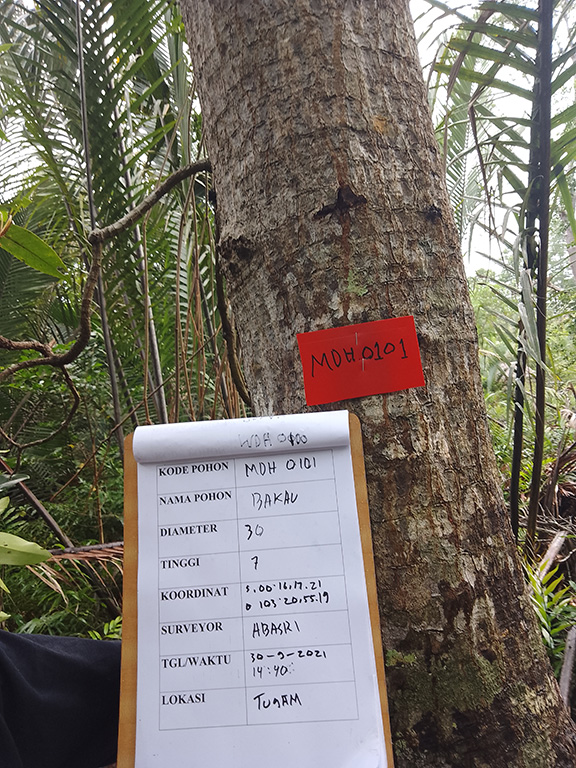 MDH 0101
KODE POHON MDH 0101
NAMA POHON BAKAU
DIAMETER 30
TINGGI 7
KOORDINAT S.00.16.17.21
0 103.20.55.19
SURVEYOR ABASRI
TGL/WAKTU 30-9-2021
14:40
LOKASI TUGAM